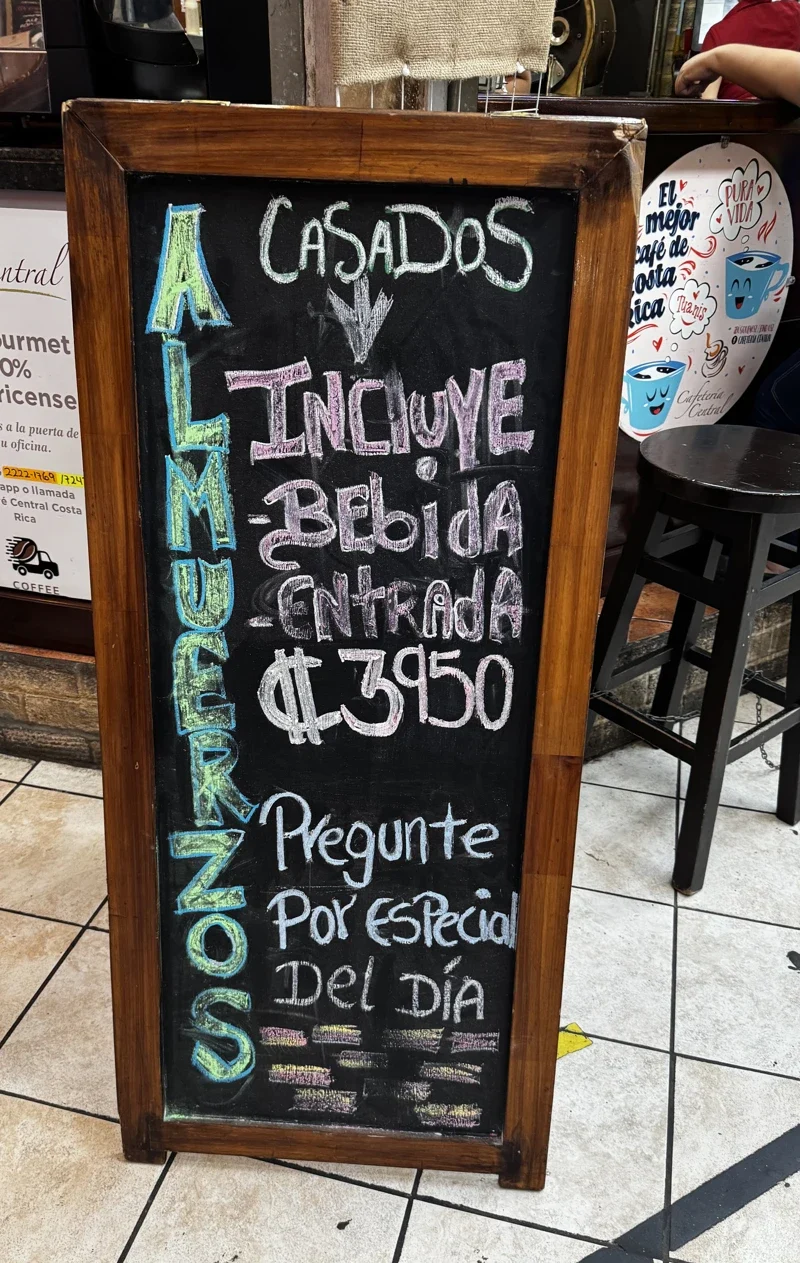 ALMUERZOS
CASADOS
INCLUYE
-BEBIDA
-ENTRADA
₡3950
Pregunte
Por Especial
Del Día
ntral
urmet
0%
ricense
s a la puerta de
u oficina.
2222-1769
app o llamada
é Central Costa
Rica
COFFEE
El
mejor
café de
osta
ica
PURA
VIDA
Tuanis
Cafetería
Central